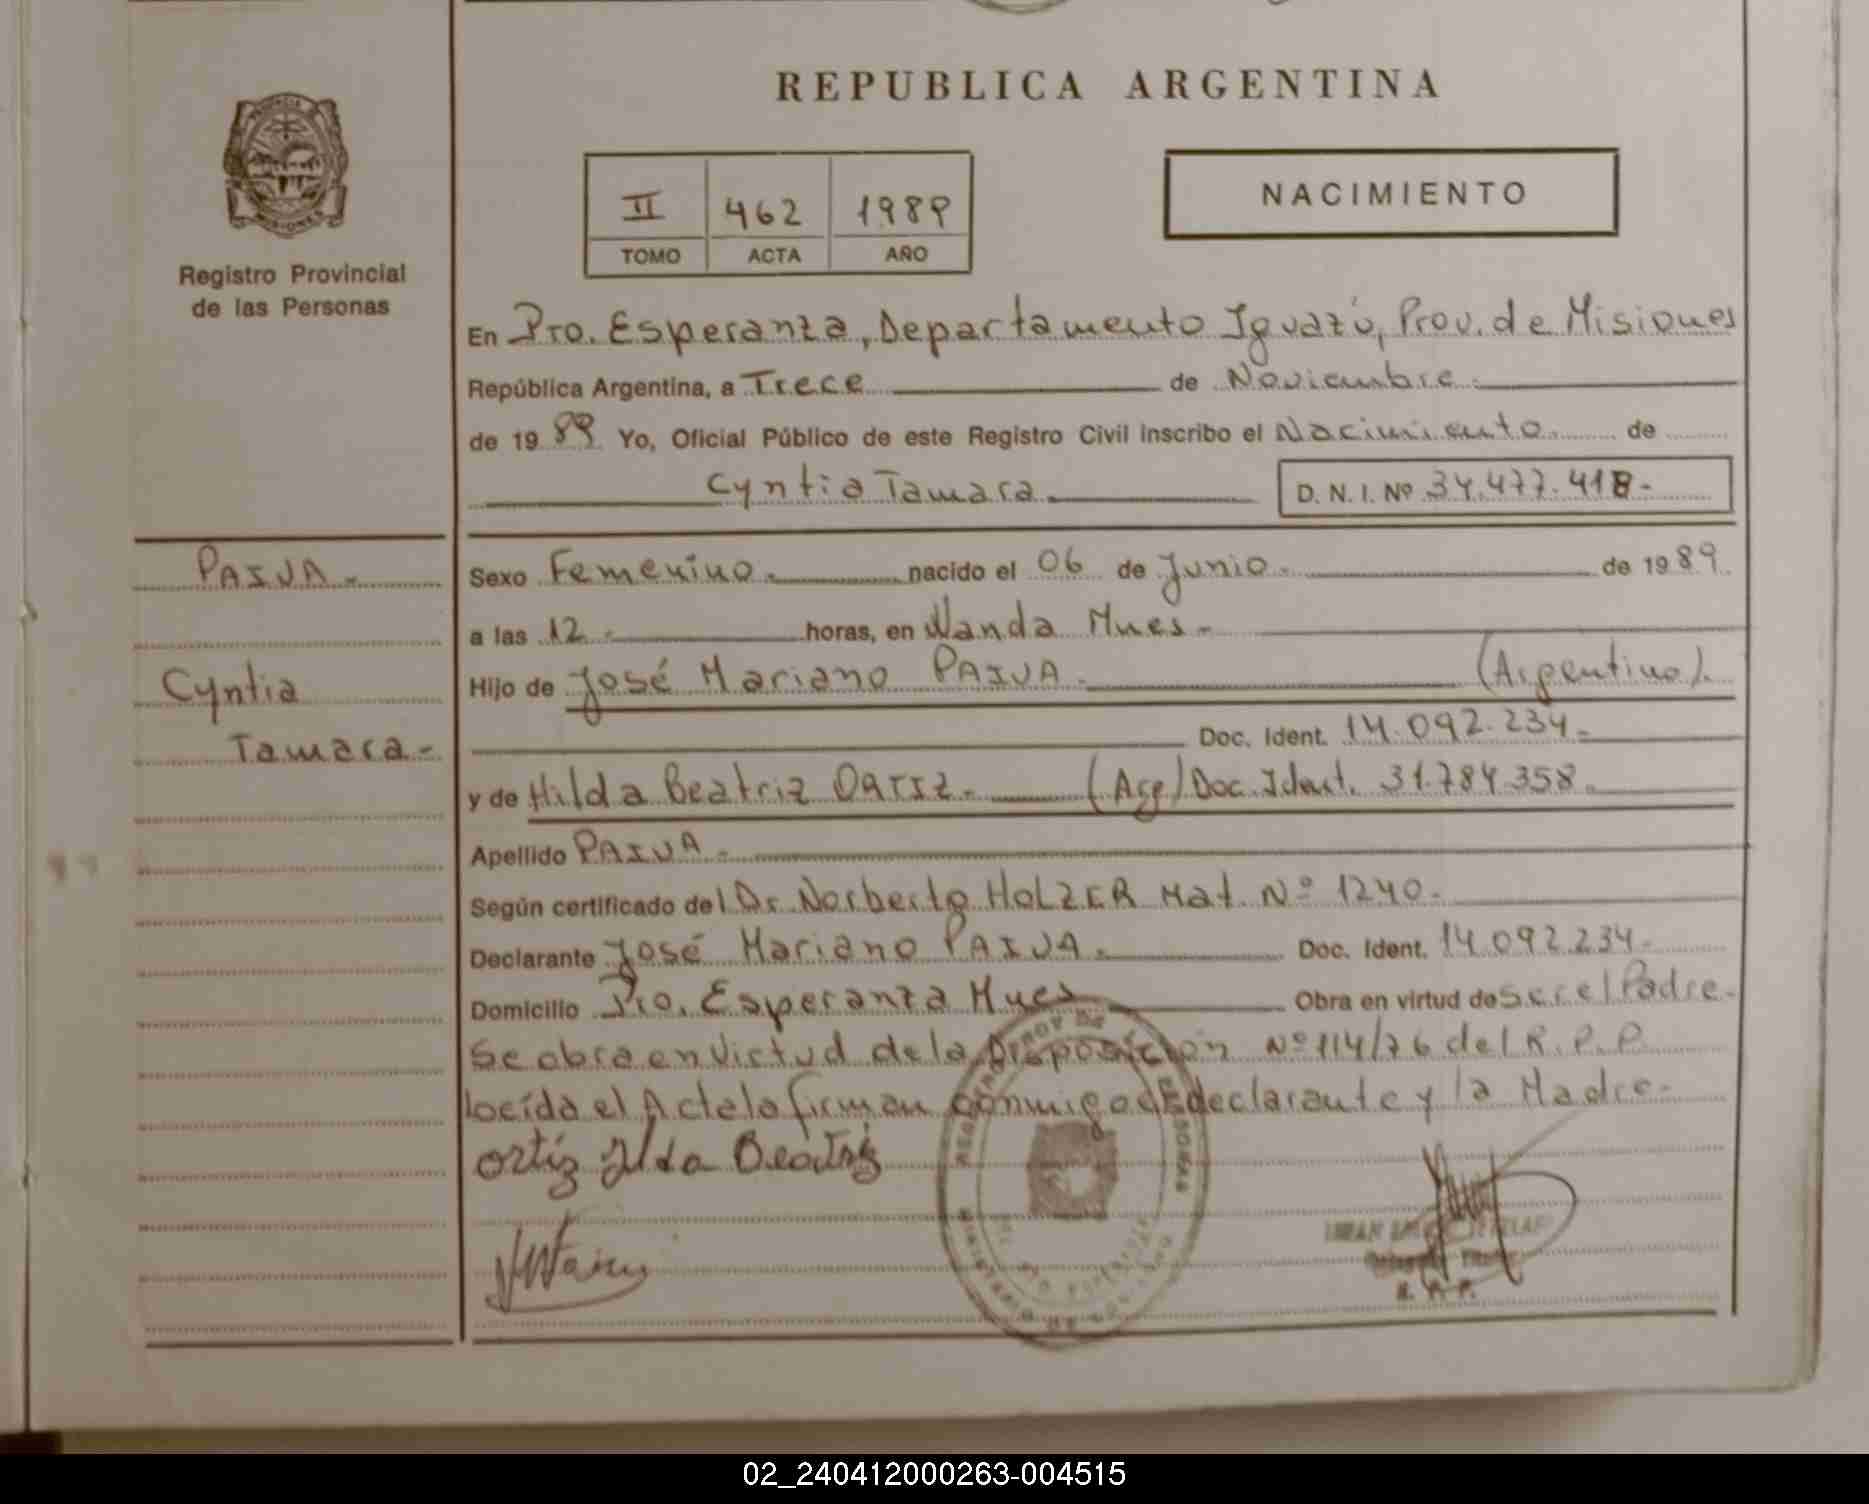 REPUBLICA ARGENTINA
Registro Provincial
de las Personas
II 462 1989
TOMO ACTA AÑO
NACIMIENTO
En Pto. Esperanza, Departamento Iguazú, Prov. de Misiones
República Argentina, a Trece de Noviembre.
de 19 89 Yo, Oficial Público de este Registro Civil inscribo el Nacimiento. de
Cyntia Tamara. D. N. I. Nº 34.477.418-
PAIVA -
Cyntia
Tamara -
Sexo Femenino. nacido el 06 de Junio. de 1989.
a las 12 - horas, en Wanda Mnes -
Hijo de José Mariano PAIVA. (Argentino).
Doc. Ident. 14.092.234 -
y de Hilda Beatriz ORTIZ. (Arg) Doc. Ident. 31.784.358.
Apellido PAIVA -
Según certificado del Dr. Norberto HOLZER Mat. Nº 1240.
Declarante José Mariano PAIVA. Doc. Ident. 14.092.234.
Domicilio Pto. Esperanza Mnes Obra en virtud de ser el Padre -
Se obra en Virtud de la Disposición Nº 114/76 del R. P. P.
leída el Acta la firman conmigo el declarante y la Madre -
Ortiz Ilda Beatriz
02_240412000263-004515